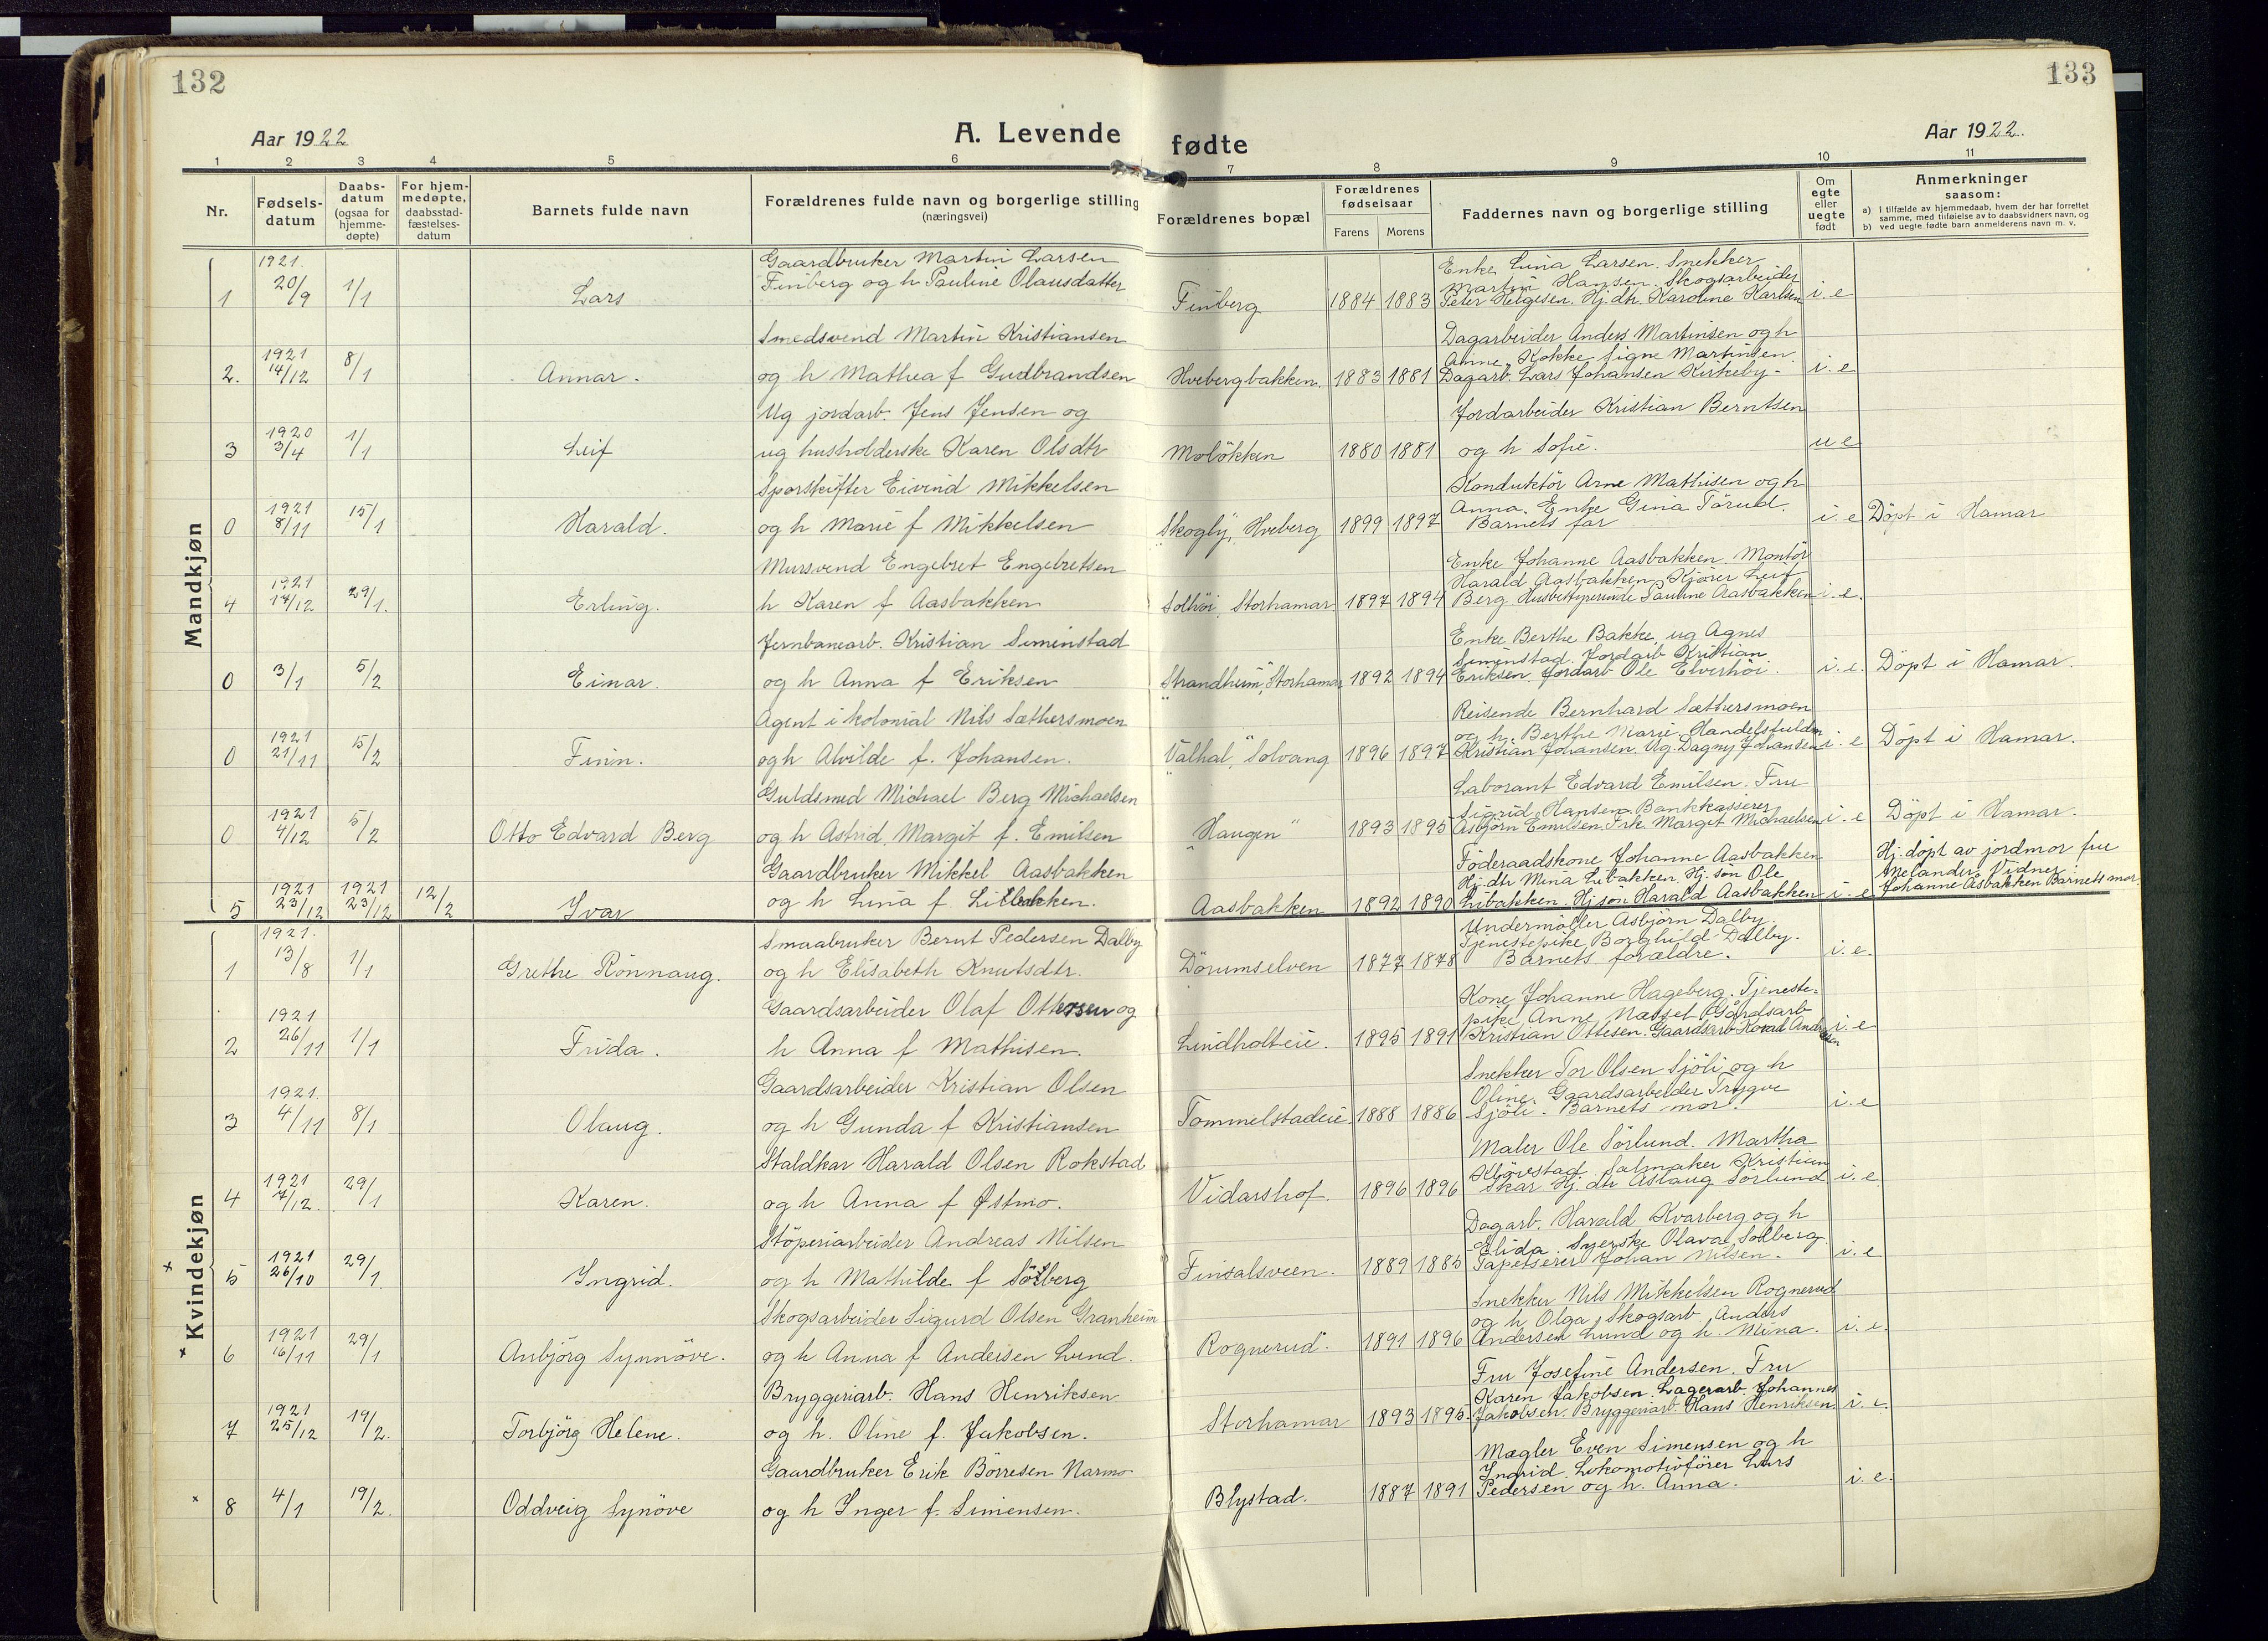 132
133
Aar 1922
A. Levende fødte
Aar 1922.
1 2 3 4 5 6 7 8 9 10 11
Nr.
Fødsels-datum
Daabs-datum (ogsaa for hjemme-døpte)
For hjem-medøpte, daabsstad-fæstelses-datum
Barnets fulde navn
Forældrenes fulde navn og borgerlige stilling (næringsvei)
Forældrenes bopæl
Forældrenes fødselsaar
Farens
Morens
Faddernes navn og borgerlige stilling
Om egte eller uegte født
Anmerkninger saasom:
a) I tilfælde av hjemmedaab, hvem der har forrettet samme, med tilføielse av to daabsvidners navn, og
b) ved uegte fødte barn anmelderens navn m. v.
Mandkjøn
1 1921. 20/9 1/1 Lars
Gaardbruker Martin Larsen
Finberg og h Pauline Olausdatter
Finberg 1884 1883
Enke Lina Larsen. Snekker
Martin Hansen. Skogsarbeider
Peter Helgesen. Hj. dtr. Karoline Karlsen i. e
2. 1921 14/12 8/1 Annar.
Smedsvend Martin Kristiansen
og h Mathea f Gudbrandsen
Hvebergbakken. 1883 1881
Dagarbeider Anders Martinsen og h
Anne, Kokke Signe Martinsen.
Dagarb. Lars Johansen Kirkeby- i. e
3 1920 3/4 1/1 Leif
Ug jordarb. Jens Jensen og
ug husholderske Karen Olsdtr
Moløkken 1880 1881
Jordarbeider Kristian Berntsen
og h Sofie. u e
0 1921 8/11 15/1 Harald.
Sporskifter Eivind Mikkelsen
og h Marie f Mikkelsen
"Skogly", Hveberg 1899 1897
Konduktör Arne Mathisen og h
Anna. Enke Gina Törud.
Barnets far i. e Döpt i Hamar
4 1921 14/12 29/1. Erling.
Mursvend Engebret Engebretsen
h Karen f Aasbakken
Solhöi, Storhamar 1897 1894
Enke Johanne Aasbakken. Montör
Harald Aasbakken, Kjörer Leif
Berg Husbestyrerinde Pauline Aasbakken i. e.
0 3/1 5/2 Einar.
Jernbanearb. Kristian Simenstad
og h Anna f Eriksen
"Strandheim", Storhamar 1892 1894
Enke Berthe Bakke, ug Agnes
Simenstad. Jordarb Kristian
Eriksen. Jordarb Ole Elverhöi. i. e. Döpt i Hamar.
0 1921 21/11 15/2 Finn.
Agent i kolonial Nils Sæthersmoen
og h Alvilde f. Johansen.
"Valhal", Solvang 1896 1897
Reisende Bernhard Sæthersmoen
og h. Berthe Marie. Handelsfuldm
Kristian Johansen. Ug. Dagny Johansen i. e Döpt i Hamar.
0 1921 4/12 5/2 Otto Edvard Berg
Guldsmed Michael Berg Michaelsen
og h Astrid Margit f. Emilsen
"Haugen" 1893 1895
Laborant Edvard Emilsen. Fru
Sigrid Hansen. Bankkasserer
Asbjörn Emilsen. Frk. Margit Michaelsen i. e Döpt i Hamar.
5 1921 23/12 1921 23/12 12/2 Ivar
Gaardbruker Mikkel Aasbakken
og h Lina f Libakken.
Aasbakken 1892 1890
Föderaadskone Johanne Aasbakken
Hj. dtr Mina Libakken. Hj. sön Ole
Libakken. Hj sön Harald Aasbakken i. e
Hj. döpt av jordmor fru
Melander. Vidner:
Johanne Asbakken Barnets mor.
Kvindekjøn
1 1921. 13/8 1/1 Grethe Rönnaug.
Smaabruker Bernt Pedersen Dalby
og h Elisabeth Knutsdtr.
Dörumselven 1877 1878
Undermöller Asbjörn Dalby.
Tjenestepike Borghild Dalby.
Barnets forældre. i. e.
2 1921 26/11 1/1 Frida.
Gaardsarbeider Olaf Ottesen og
h Anna f Mathisen.
Lindholteie. 1895 1891
Kone Johanne Hageberg. Tjeneste-
pike Anne Næsset Gårdsarb
Kristian Ottesen. Gaardsarb Konrad Andresen i. e
3 1921. 4/11 8/1 Olaug.
Gaardsarbeider Kristian Olsen
og h Gunda f Kristiansen
Tommelstadeie 1888 1886
Snekker Tor Olsen Sjöli og h
Oline. Gaardsarbeider Trygve
Sjöli. Barnets mor. i. e
4 1921 7/12. 29/1 Karen.
Staldkar Harald Olsen Rokstad
og h Anna f Østmo.
Vidarshof. 1896 1896
Maler Ole Sörlund. Martha
Klövstad. Salmaker Kristian
Skar Hj. dtr Aslaug Sörlund i. e.
5 1921 26/10 29/1. Ingrid.
Stöperiarbeider Andreas Nilsen
og h Mathilde f Solberg
Finsalsveen. 1889 1885
Dagarb. Harald Kvarberg og h
Elida. Syerske Olava Solberg
Tapetserer Johan Nilsen. i. e
6 1921 16/11 29/1 Anbjörg Synnöve.
Skogsarbeider Sigurd Olsen Granheim
og h Anna f Andersen Lund.
Rognerud". 1891 1896
Snekker Nils Mikkelsen Rognerud
og h Olga, Skogsarb. Anders
Andersen Lund og h. Mina. i. e.
7 1921 25/12 19/2. Torbjörg Helene.
Bryggeriarb. Hans Henriksen
og h. Oline f. Jakobsen.
Storhamar 1893 1895.
Fru Josefine Andersen. Fru
Karen Jakobsen. Lagerarb. Johannes
Jakobsen. Bryggeriarb. Hans Henriksen. i. e.
8 4/1 19/2. Oddveig Synöve
Gaardbruker Erik Börresen Narmo
og h Inger f. Simensen.
Blystad. 1887 1891
Mægler Even Simensen og h
Ingrid. Lokomotivförer Lars
Pedersen og h. Anna. i. e.